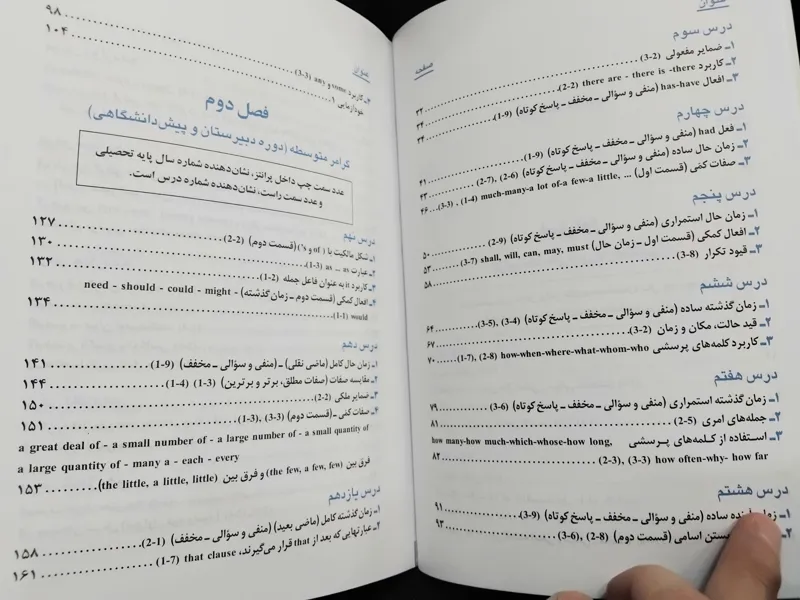 عنوان
صفحه
درس سوم
۱ـ ضمایر مفعولی (2-3) ........ ۳۲
۲ـ کاربرد there are - there is -there (2-2) ........ ۳۴
۳ـ افعال has-have (منفی و سؤالی ـ مخفف ـ پاسخ کوتاه) (9-1) ........ ۳۴
درس چهارم
۱ـ فعل had (منفی و سؤالی ـ مخفف ـ پاسخ کوتاه) (9-1) ........ ۴۱
۲ـ زمان حال ساده (منفی و سؤالی ـ مخفف ـ پاسخ کوتاه) (6-2) ,(7-2) ........ ۴۳
۳ـ صفات کمّی (قسمت اول) ... ,much-many-a lot of-a few-a little (4-1) , (3-3) ... ۴۶
درس پنجم
۱ـ زمان حال استمراری (منفی و سؤالی ـ مخفف ـ پاسخ کوتاه) (9-2) ........ ۵۰
۲ـ افعال کمکی (قسمت اول ـ زمان حال) shall, will, can, may, must (7-3) ........ ۵۳
۳ـ قیود تکرار (8-3) ........ ۵۸
درس ششم
۱ـ زمان گذشته ساده (منفی و سؤالی ـ مخفف ـ پاسخ کوتاه) (4-3) ,(5-3) ........ ۶۴
۲ـ قید حالت، مکان و زمان (2-3) ........ ۶۷
۳ـ کاربرد کلمه‌های پرسشی how-when-where-what-whom-who (8-2) ,(7-1) ........ ۷۰
درس هفتم
۱ـ زمان گذشته استمراری (منفی و سؤالی ـ مخفف ـ پاسخ کوتاه) (6-3) ........ ۷۹
۲ـ جمله‌های امری (5-2) ........ ۸۱
۳ـ استفاده از کلمه‌های پرسشی how many-how much-which-whose-how long,
how often-why- how far (3-3) ,(3-2) ........ ۸۲
درس هشتم
۱ـ زمان آینده ساده (منفی و سؤالی ـ مخفف ـ پاسخ کوتاه) (9-3) ........ ۹۱
۲ـ اسامی (قسمت دوم) (8-2) ,(6-3) ........ ۹۳
عنوان
۳ـ کاربرد some و any (3-3) ........ ۹۸
خودآزمایی ۱ ........ ۱۰۴
فصل دوم
گرامر متوسطه (دوره دبیرستان و پیش‌دانشگاهی)
عدد سمت چپ داخل پرانتز، نشان‌دهنده شماره سال پایه تحصیلی
و عدد سمت راست، نشان‌دهنده شماره درس است.
درس نهم
۱ـ شکل مالکیت با ( of و s') (قسمت دوم) (2-2) ........ ۱۲۷
۲ـ عبارت as ... as (3-1) ........ ۱۳۰
۳ـ کاربرد it به عنوان فاعل جمله (2-1) ........ ۱۳۲
۴ـ افعال کمکی (قسمت دوم ـ زمان گذشته) - need - should - could - might
would (1-1) ........ ۱۳۴
درس دهم
۱ـ زمان حال کامل (ماضی نقلی) ـ (منفی و سؤالی ـ مخفف) (9-1) ........ ۱۴۱
۲ـ مقایسه صفات (صفات مطلق، برتر و برترین) (3-1) (4-1) ........ ۱۴۴
۳ـ ضمایر ملکی (2-2) ........ ۱۵۰
۴ـ صفات کمّی ـ (قسمت دوم) (3-3) ,(3-1) ........ ۱۵۱
a great deal of - a small number of - a large number of - a small quantity of
a large quantity of - many a - each - every
فرق بین (the few, a few, few) و فرق بین (the little, a little, little) ........ ۱۵۳
درس یازدهم
۱ـ زمان گذشته کامل (ماضی بعید) (منفی و سؤالی ـ مخفف) (2-1) ........ ۱۵۸
۲ـ عبارتهایی که بعد از that قرار می‌گیرند، that clause (7-1) ........ ۱۶۱